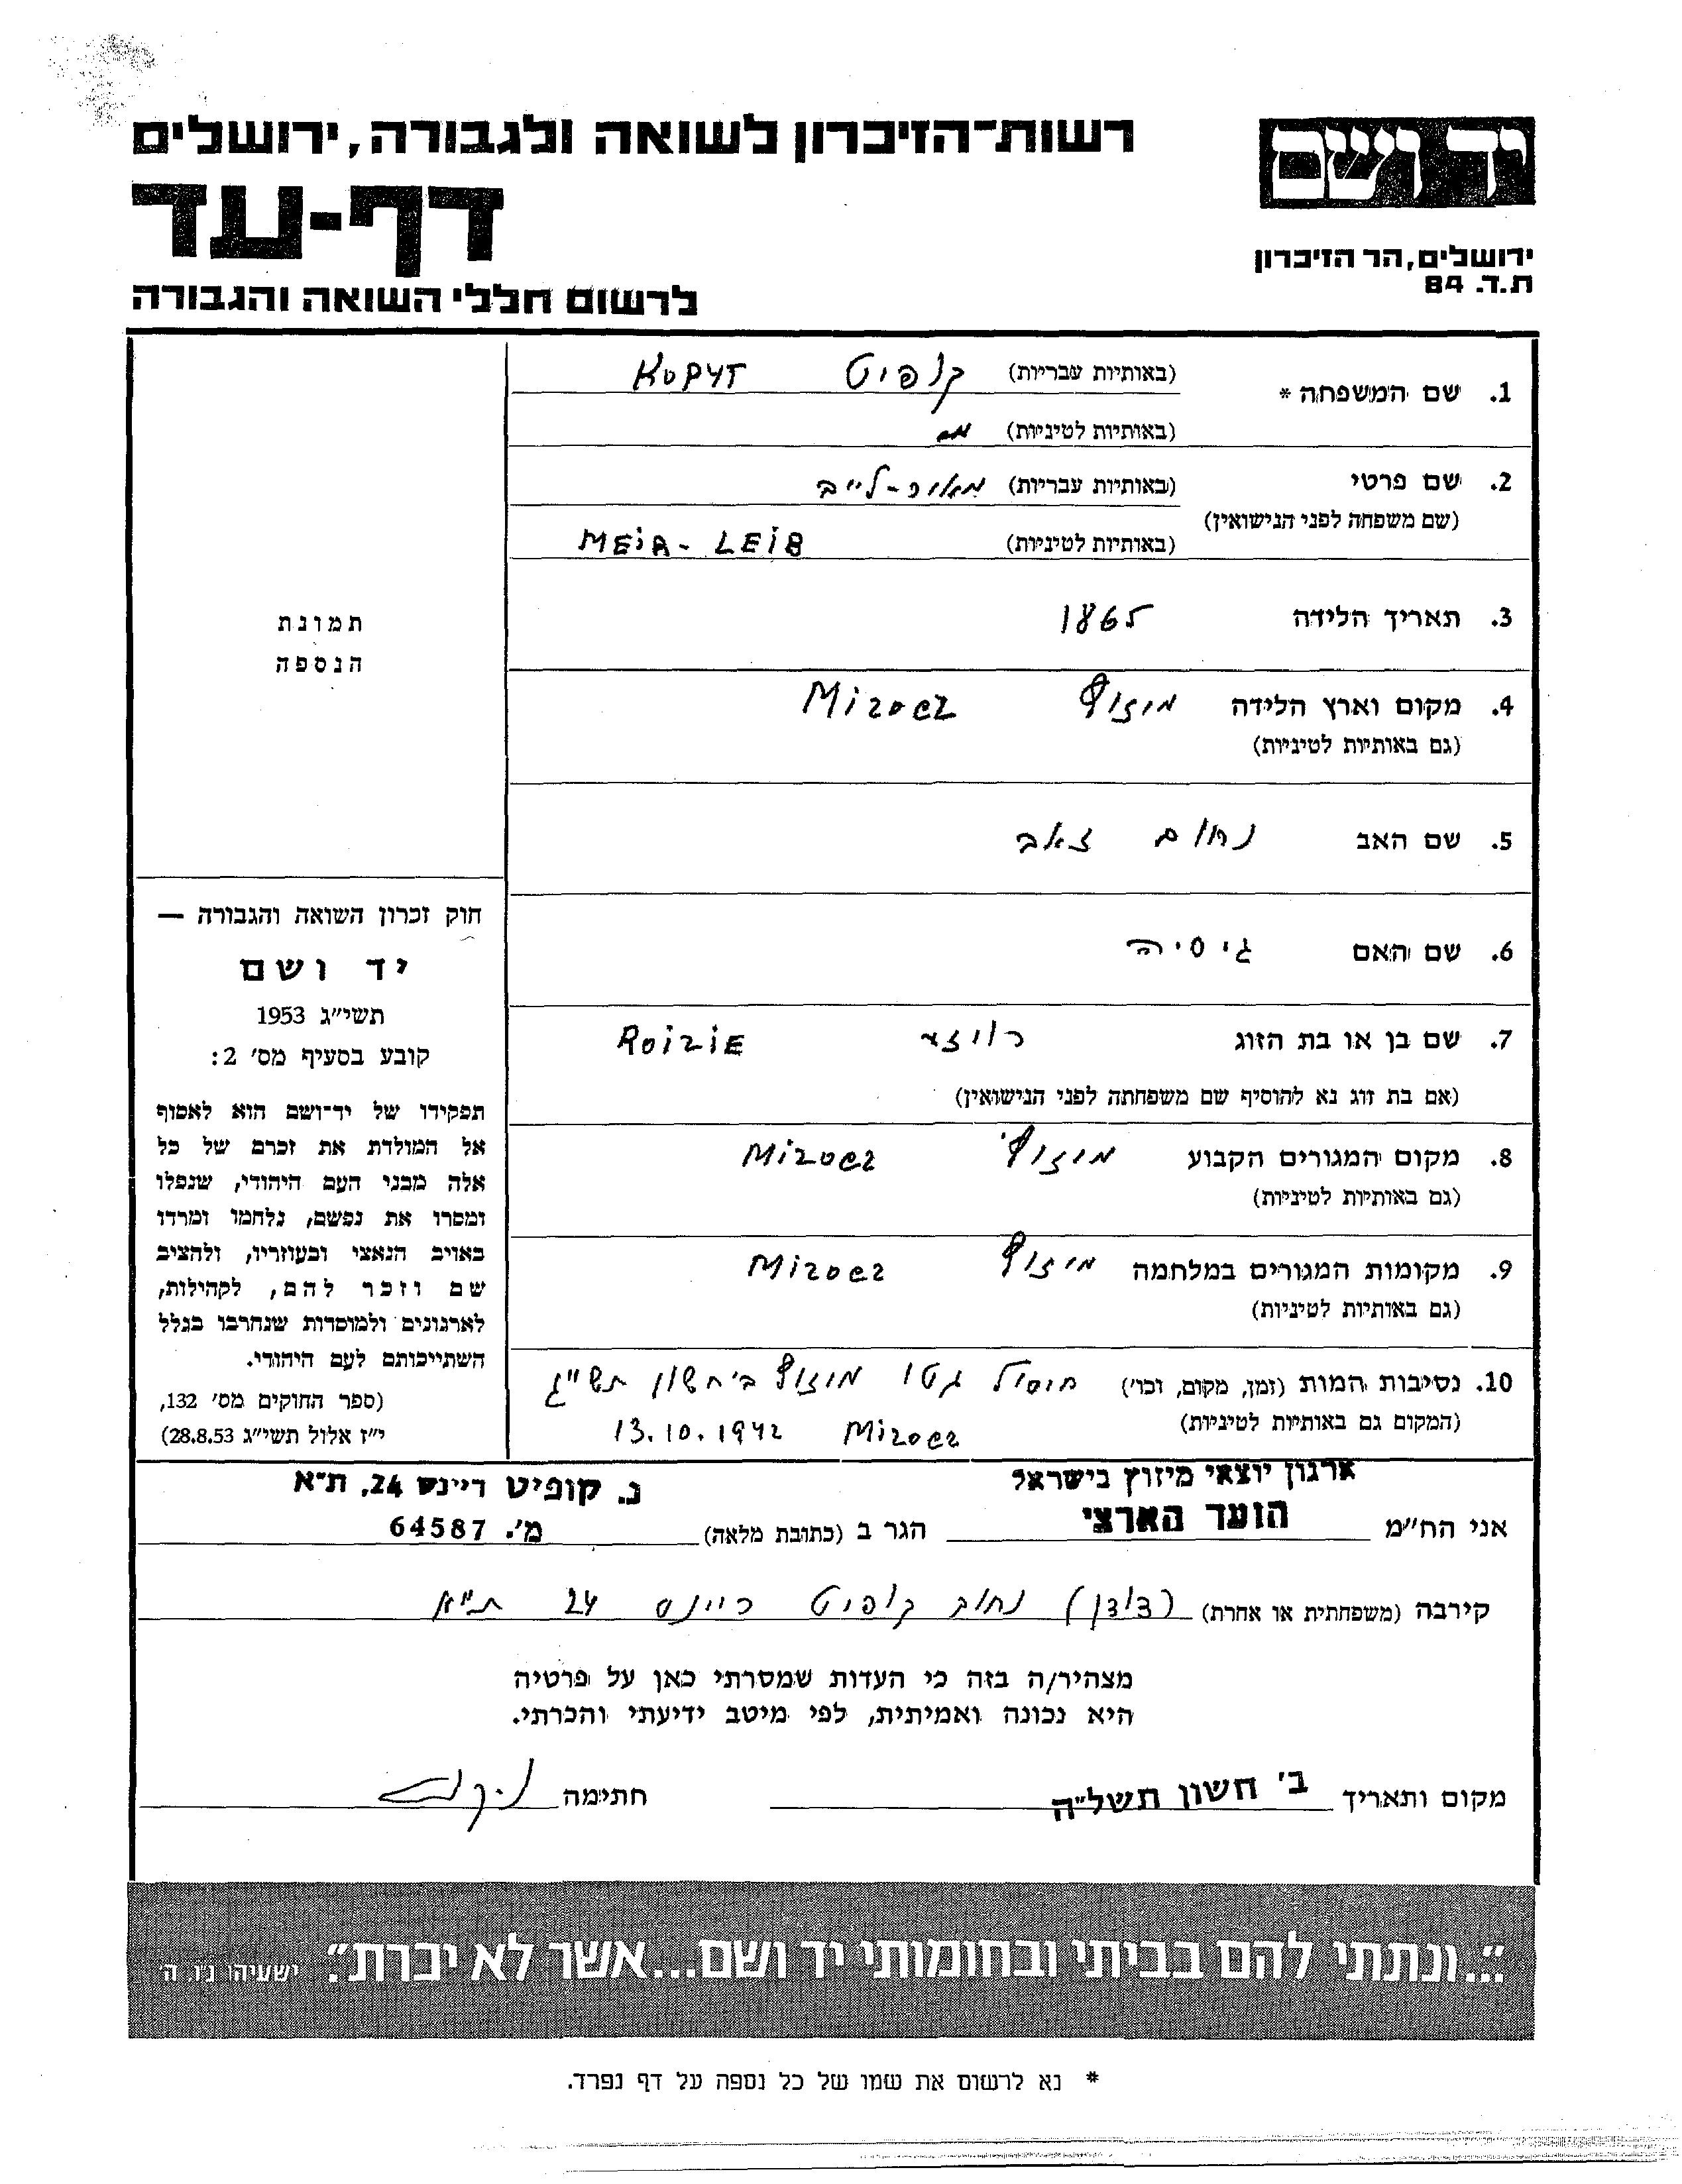 יד ושם
ירושלים, הר הזיכרון
ת.ד. 84
רשות-הזיכרון לשואה ולגבורה, ירושלים
דף-עד
לרשום חללי השואה והגבורה
1. שם המשפחה * (באותיות עבריות) קופיט KOPYT
(באותיות לטיניות)
2. שם פרטי (באותיות עבריות) מאיר-לייב
(שם משפחה לפני הנישואין)
(באותיות לטיניות) MEiR - LEiB
3. תאריך הלידה 1865
4. מקום וארץ הלידה מיזוץ Mizocz
(גם באותיות לטיניות)
5. שם האב נחום זאב
6. שם האם גיסיה
7. שם בן או בת הזוג רויזא RoiziE
(אם בת זוג נא להוסיף שם משפחתה לפני הנישואין)
8. מקום המגורים הקבוע מיזוץ Mizocz
(גם באותיות לטיניות)
9. מקומות המגורים במלחמה מיזוץ Mizocz
(גם באותיות לטיניות)
10. נסיבות המות (זמן, מקום, וכו') חיסול גטו מיזוץ ב' חשון תש"ג
(המקום גם באותיות לטיניות) Mizocz 13.10.1942
תמונת
הנספה
חוק זכרון השואה והגבורה —
יד ושם
תשי״ג 1953
קובע בסעיף מס' 2:
תפקידו של יד-ושם הוא לאסוף
אל המולדת את זכרם של כל
אלה מבני העם היהודי, שנפלו
ומסרו את נפשם, נלחמו ומרדו
באויב הנאצי ובעוזריו, ולהציב
שם וזכר להם, לקהילות,
לארגונים ולמוסדות שנחרבו בגלל
השתייכותם לעם היהודי.
(ספר החוקים מס' 132,
י״ז אלול תשי״ג 28.8.53)
ארגון יוצאי מיזוץ בישראל
הועד הארצי
נ. קופיט ריינס 24, ת״א
מ'. 64587
אני הח״מ הגר ב (כתובת מלאה)
קירבה (משפחתית או אחרת) (דודן) נחום קופיט ריינס 24 ת"א
מצהיר/ה בזה כי העדות שמסרתי כאן על פרטיה
היא נכונה ואמיתית, לפי מיטב ידיעתי והכרתי.
מקום ותאריך ב' חשון תשל״ה חתימה
״...ונתתי להם בביתי ובחומותי יד ושם...אשר לא יכרת״. ישעיהו נ״ו. ה'
* נא לרשום את שמו של כל נספה על דף נפרד.